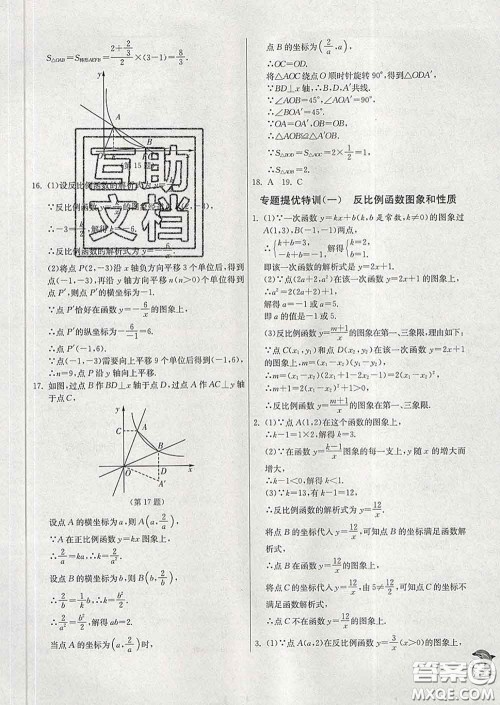 S△OAB=S梯形ACDB=(2+2/3)/2×(3-1)=8/3.
y
A
B
O
x
第15题
16. (1)设反比例函数的解析式为
∵反比例函数
∴-3=
∴反比例函数的解析式为
(2)将点P(2,-3)沿x轴负方向平移3个单位后,得到点
(-1,-3),再沿y轴正方向平移n(n>0)个单位得到
点P′,则点P′的横坐标为-1.
∵点P′恰好在函数y=-6/x的图象上,
∴点P′的纵坐标为-6/-1=6.
∴点P′(-1,6).
∴点(-1,-3)需要向上平移9个单位后得到(-1,6),
∴n=9,点P′沿y轴平移的方向为正方向.
17. 如图,过点B作BD⊥x轴于点D,过点A作AC⊥y轴
于点C,
y
C
A
B
O
D
x
A′
(第17题)
设点A的横坐标为a,则A(a,2/a),
∵A在正比例函数y=kx的图象上,
∴2/a=ka,∴k=2/a².
设点B的横坐标为b,则B(b,2/b),
∴2/b=1/k·b,∴k=b²/2.
∴2/a²=b²/2,解得ab=2.
当点A的坐标为(a,2/a)时,
点B的坐标为(2/a,a),
∴OC=OD.
将△AOC绕点O顺时针旋转90°,得到△ODA′,
∵BD⊥x轴,∴B、D、A′共线.
∵∠AOB=45°,∠AOA′=90°,
∴∠BOA′=45°.
∵OA=OA′,OB=OB,
∴△AOB≌△A′OB.
∴S△AOB=S△BOD+S△AOC=2×1/2×2=2.
18. A 19. C
专题提优特训(一) 反比例函数图象和性质
1. (1)∵一次函数y=kx+b(k、b是常数,k≠0)的图象过
A(1,3),B(-1,-1)两点,
∴{k+b=3, -k+b=-1, 解得{k=2, b=1.
即该一次函数的解析式是y=2x+1.
(2)∵点(2a+2,a²)在该一次函数y=2x+1的图象上,
∴a²=2(2a+2)+1.
解得a=-1或a=5.
即a的值是-1或5.
(3)反比例函数y=(m+1)/x的图象在第一、三象限,理由如下;
∵点C(x₁,y₁)和点D(x₂,y₂)在该一次函数y=2x+1
的图象上,m=(x₁-x₂)(y₁-y₂),
∴m=(x₁-x₂)(2x₁+1-2x₂-1)=2(x₁-x₂)².
∵x₁≠x₂,∴m=2(x₁-x₂)²>0.∴m+1>0.
∴反比例函数y=(m+1)/x的图象在第一、三象限.
2. (1)∵点A(1,2)在这个函数的图象上,
∴k-1=1×2.解得k=3.
(2)∵在函数y=(k-1)/x图象的每一支上,y随x的增大而
增大,
∴k-1<0.∴k<1.
(3)∵k=13,有k-1=12,
∴反比例函数的解析式为y=12/x.
将点B的坐标代入y=12/x,可知点B的坐标满足函数解
析式,
∴点B在函数y=12/x的图象上.
将点C的坐标代入y=12/x,由5≠12/2,可知点C的坐标不
满足函数解析式,
∴点C不在函数y=12/x的图象上.
3. (1)∵点A(a,2)在反比例函数y=3/x(x>0)的图象上,
互助
文档
答案圈
MXQE.COM